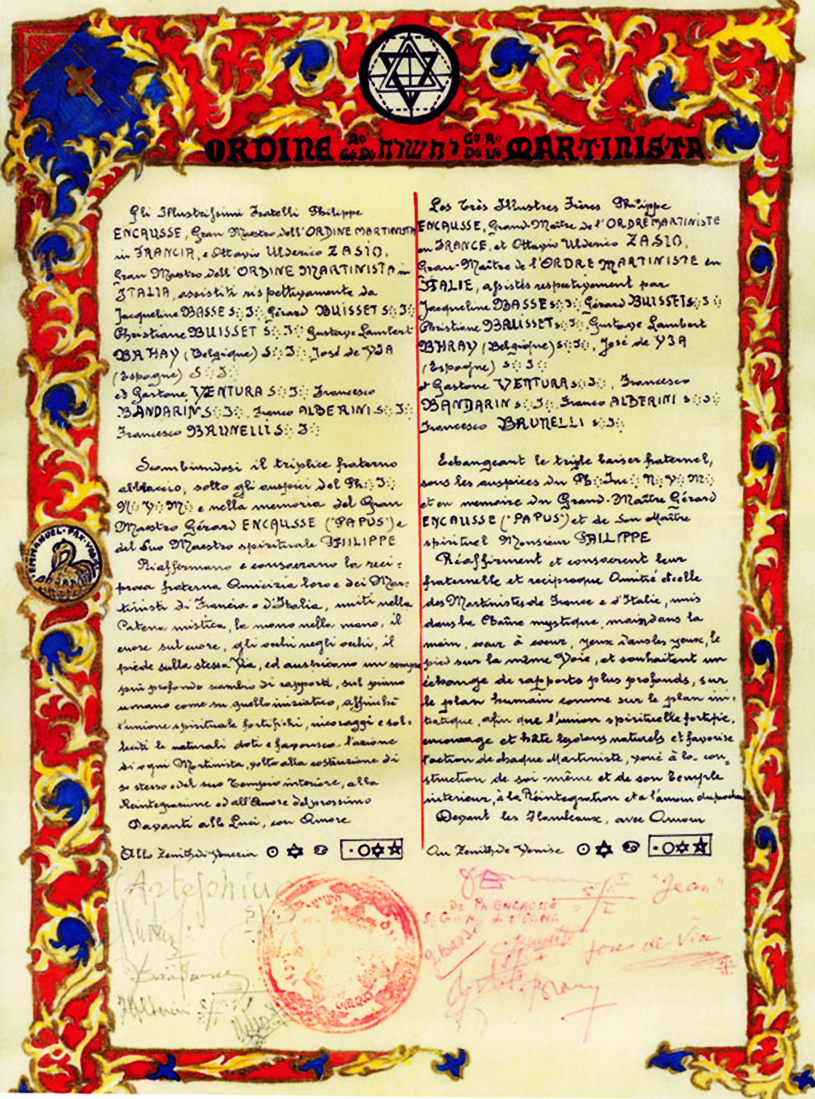 ORDINE MARTINISTA
EMMANUEL · PAX · VOBIS
Gli Illustrissimi Fratelli Philippe
ENCAUSSE, Gran Maestro dell'ORDINE MARTINISTA
in FRANCIA, e Ottavio Ulderico ZASIO,
Gran Maestro dell'ORDINE MARTINISTA in
ITALIA, assistiti rispettivamente da
Jacqueline BASSE S∴I∴ Gérard BUISSET S∴I∴
Christiane BUISSET S∴I∴ Gustave Lambert
BRHAY (Belgique) S∴I∴ José de VIA
(Espagne) S∴I∴
ed Gastone VENTURA S∴I∴ Francesco
BANDARIN S∴I∴, Franco ALBERINI S∴I∴
Francesco BRUNELLI S∴I∴
Scambiandosi il triplice fraterno
abbraccio, sotto gli auspici del Ph∴I∴
N∴V∴M∴ e nella memoria del Gran
Maestro Gérard ENCAUSSE ("PAPUS") e
del Suo Maestro spirituale PHILIPPE
Riaffermano e consacrano la reci-
proca fraterna Amicizia loro e dei Mar-
tinisti di Francia e d'Italia, uniti nella
Catena mistica, la mano nella mano, il
cuore sul cuore, gli occhi negli occhi, il
piede sulla stessa Via, ed auspicano un sempre
più profondo scambio di rapporti, sul piano
umano come su quello iniziatico, affinché
l'unione spirituale fortifichi, incoraggi e sol-
leciti le naturali doti e favorisca l'azione
di ogni Martinista, volto alla costruzione di
se stesso e del suo Tempio interiore, alla
Reintegrazione ed all'Amore del prossimo
Davanti alle Luci, con Amore
Allo Zenith di Venezia
Les Très Illustres Frères Philippe
ENCAUSSE, Grand-Maître de l'ORDRE MARTINISTE
en FRANCE, et Ottavio Ulderico ZASIO,
Gran-Maître de l'ORDRE MARTINISTE en
ITALIE, assistés respectivement par
Jacqueline BASSE S∴I∴ Gérard BUISSET S∴I∴
Christiane BAUISSET S∴I∴, Gustave Lambert
BHRAY (Belgique) S∴I∴, José de VIA
(Espagne) S∴I∴
et Gastone VENTURA S∴I∴, Francesco
BANDARIN S∴I∴, Franco ALBERINI S∴I∴
Francesco BRUNELLI S∴I∴
Echangeant le triple baiser fraternel,
sous les auspices du Ph∴Inc∴N∴V∴M∴
et en memoire du Grand-Maître Gérard
ENCAUSSE ("PAPUS") et de son Maître
spirituel Monsieur PHILIPPE
Réaffirment et consacrent leur
fraternelle et réciproque Amitié et celle
des Martinistes de France e d'Italie, unis
dans la Chaîne mystique, main dans la
main, coeur à coeur, yeux dans les yeux, le
pied sur la même Voie, et souhaitent un
échange de rapports plus profonds, sur
le plan humain comme sur le plan ini-
tiatique, afin que l'union spirituelle fortifie,
encourage et hâte les dons naturels et favorise
l'action de chaque Martiniste, voué à la con-
struction de soi même et de son Temple
interieur, à la Réintegration et a l'amour du prochain
Devant les Flambeaux, avec Amour
Au Zenith de Venise
Artephius
"Jean"
Dr Ph. ENCAUSSE
Jose de Via